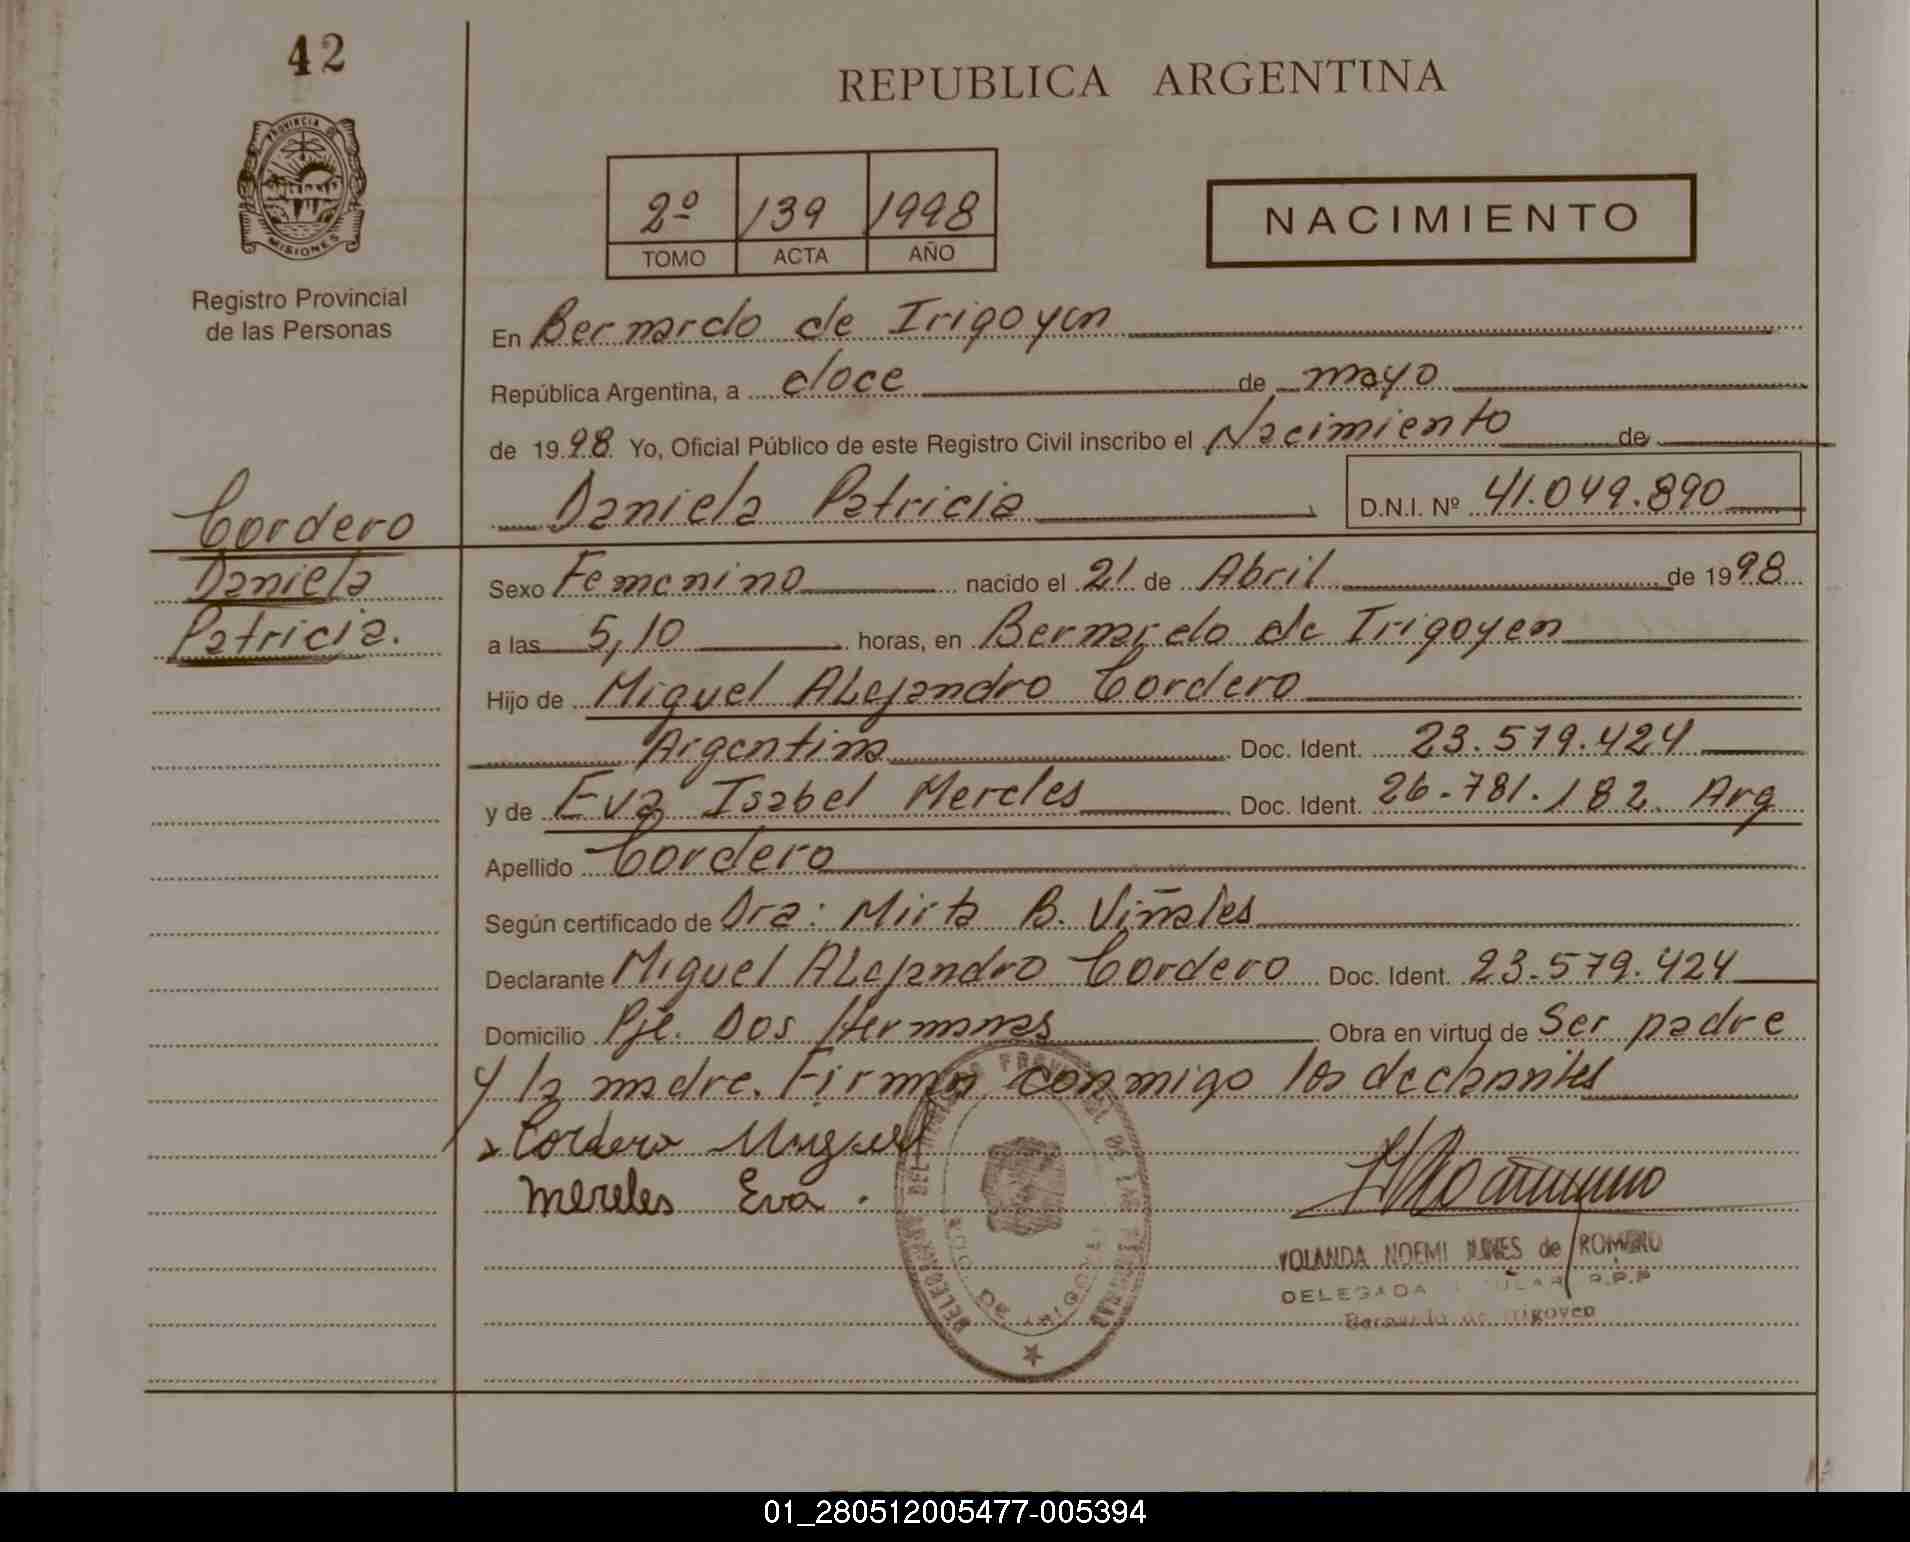 42
REPUBLICA ARGENTINA
PROVINCIA DE
MISIONES
Registro Provincial
de las Personas
2º 139 1998
TOMO ACTA AÑO
NACIMIENTO
En Bernardo de Irigoyen
República Argentina, a doce de mayo
de 1998 Yo, Oficial Público de este Registro Civil inscribo el Nacimiento de
Daniela Patricia D.N.I. Nº 41.049.890
Cordero
Daniela
Patricia.
Sexo Femenino nacido el 21 de Abril de 1998
a las 5,10 horas, en Bernardo de Irigoyen
Hijo de Miguel ALejandro Cordero
Argentina Doc. Ident. 23.579.424
y de Eva Isabel Mereles Doc. Ident. 26.781.182 Arg
Apellido Cordero
Según certificado de Dra: Mirta B. Viñales
Declarante Miguel ALejandro Cordero Doc. Ident. 23.579.424
Domicilio Pje. Dos Hermanas Obra en virtud de Ser padre
y la madre. Firman conmigo los declarantes
Cordero Miguel
Mereles Eva.
YOLANDA NOEMI de ROMERO
DELEGADA R.P.P
Bernardo de Irigoyen
01_280512005477-005394